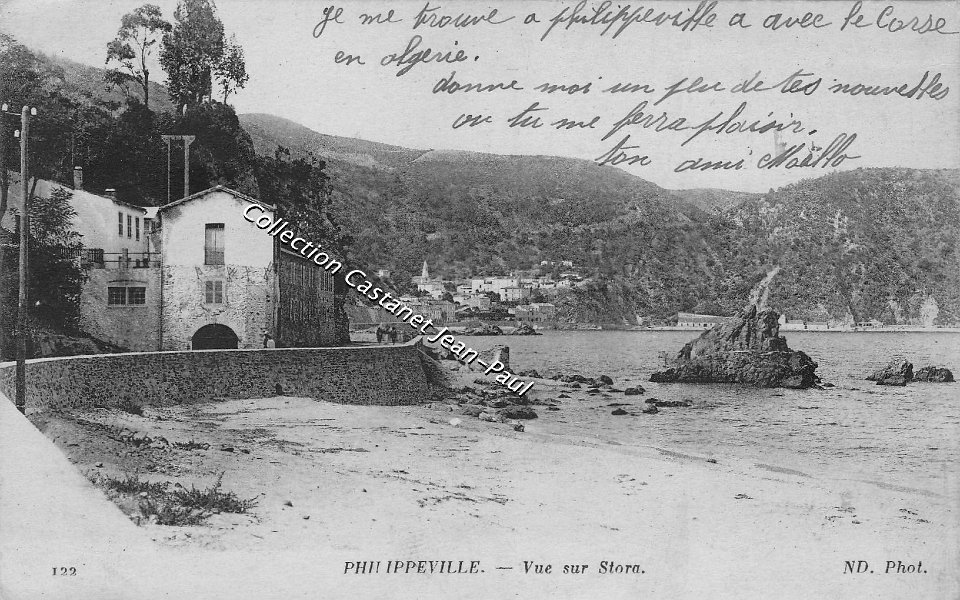 Je me trouve a philippeville a avec le Corse
en algerie.
donne moi un peu de tes nouvelles
ou tu me ferra plaisir.
ton ami Maëllo
Collection Castanet Jean-Paul
122
PHILIPPEVILLE. — Vue sur Stora.
ND. Phot.